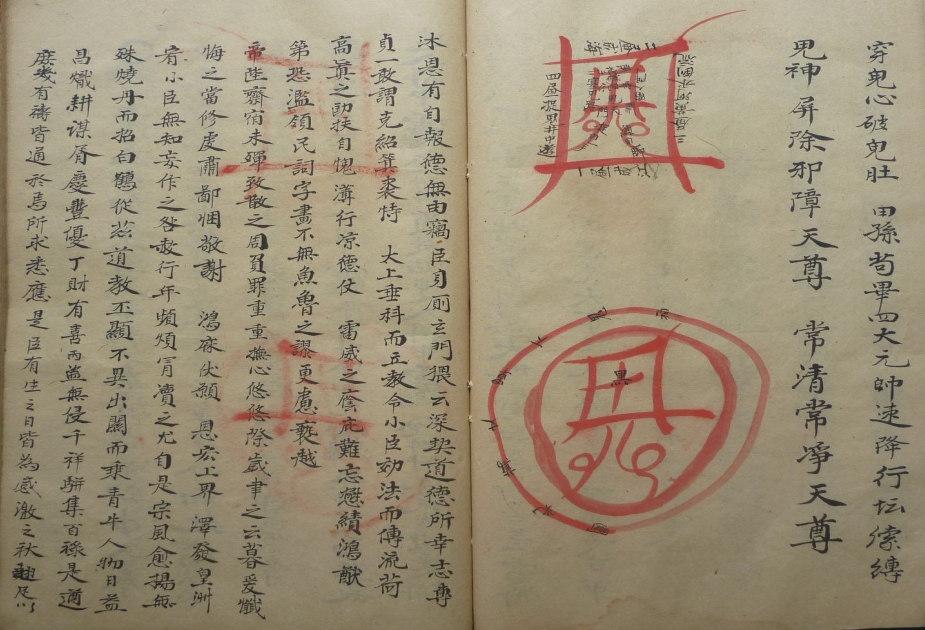 穿鬼心破鬼肚 田孫苟畢四大元帥速降行坛索縛
鬼神屏除邪障天尊 常清常淨天尊
黑
沐恩有自報德無由竊臣身厠玄門猥云深契道德所幸志專
貞一敢謂克紹箕裘恃 太上垂科而立教令小臣効法而傳流荷
高眞之助扶自愧溥行凉德仗 雷威之蔭庇難忘懋績鴻猷
第恐濫領民詞字畫不無魚魯之謬更慮褻越
帝陛齋宿未殫致散之周頁罪重重撫心悠悠際歲聿之云暮爰懺
悔之當修虔肅鄙悃敬謝 鴻庥伏願 恩宏上界澤發皇洲
宥小臣無知妄作之咎赦行年頻煩冐瀆之尤自是宗風愈揚無
殊燒丹而招白鶴從茲道教丕顯不異出關而乘青牛人物日益
昌熾耕謀屑慶豐優丁財有喜而益無侵千祥駢集百祿是遒
庶幾有禱皆通於焉所求悉應是臣有生之日皆為感激之秋